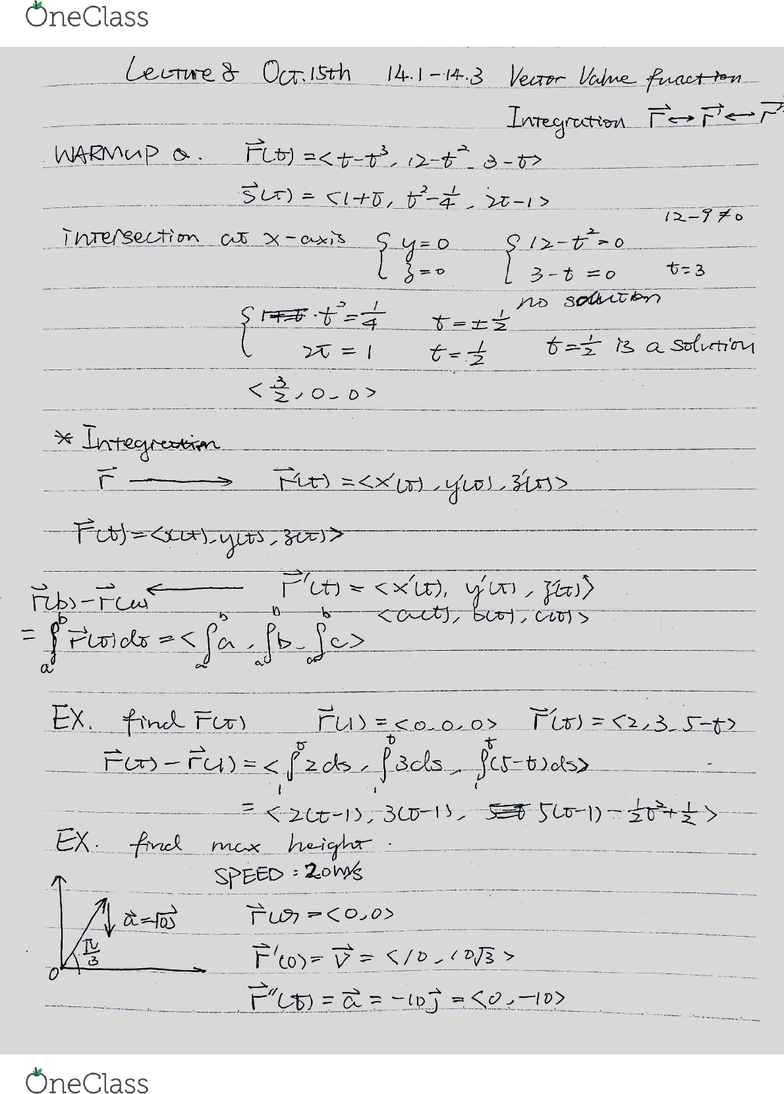 OneClass
Lecture 8 Oct. 15th 14.1-14.3 Vector Value function
Integration r⃗ ↔ r⃗' ↔ r⃗''
WARMUP Q. r⃗(t) = <t-t³, 12-t², 3-t>
s⃗(t) = <1+t, t²-1/4, 2t-1>
12-9≠0
intersection at x-axis { y=0 z=0 { 12-t²=0 3-t=0 t=3
no solution
{ t²=1/4 t=±1/2
2t=1 t=1/2 t=1/2 is a solution
<3/2, 0, 0>
* Integration
r⃗ → r⃗'(t) = <x'(t), y'(t), z'(t)>
r⃗(t) = <x(t), y(t), z(t)>
r⃗(b)-r⃗(a) ← r⃗'(t) = <x'(t), y'(t), z'(t)>
<a(t), b(t), c(t)>
= ∫ₐᵇ r⃗'(t)dt = <∫ₐᵇ a, ∫ₐᵇ b, ∫ₐᵇ c>
EX. find r⃗(t) r⃗(1) = <0, 0, 0> r⃗'(t) = <2, 3, 5-t>
r⃗(t) - r⃗(1) = <∫₁ᵗ 2ds, ∫₁ᵗ 3ds, ∫₁ᵗ (5-t)ds>
= <2(t-1), 3(t-1), 5(t-1) - 1/2t² + 1/2>
EX. find max height.
SPEED: 20m/s
a⃗=10j⃗ r⃗(0) = <0, 0>
π/3 r⃗'(0) = v⃗ = <10, 10√3>
0
r⃗''(t) = a⃗ = -10j⃗ = <0, -10>
OneClass